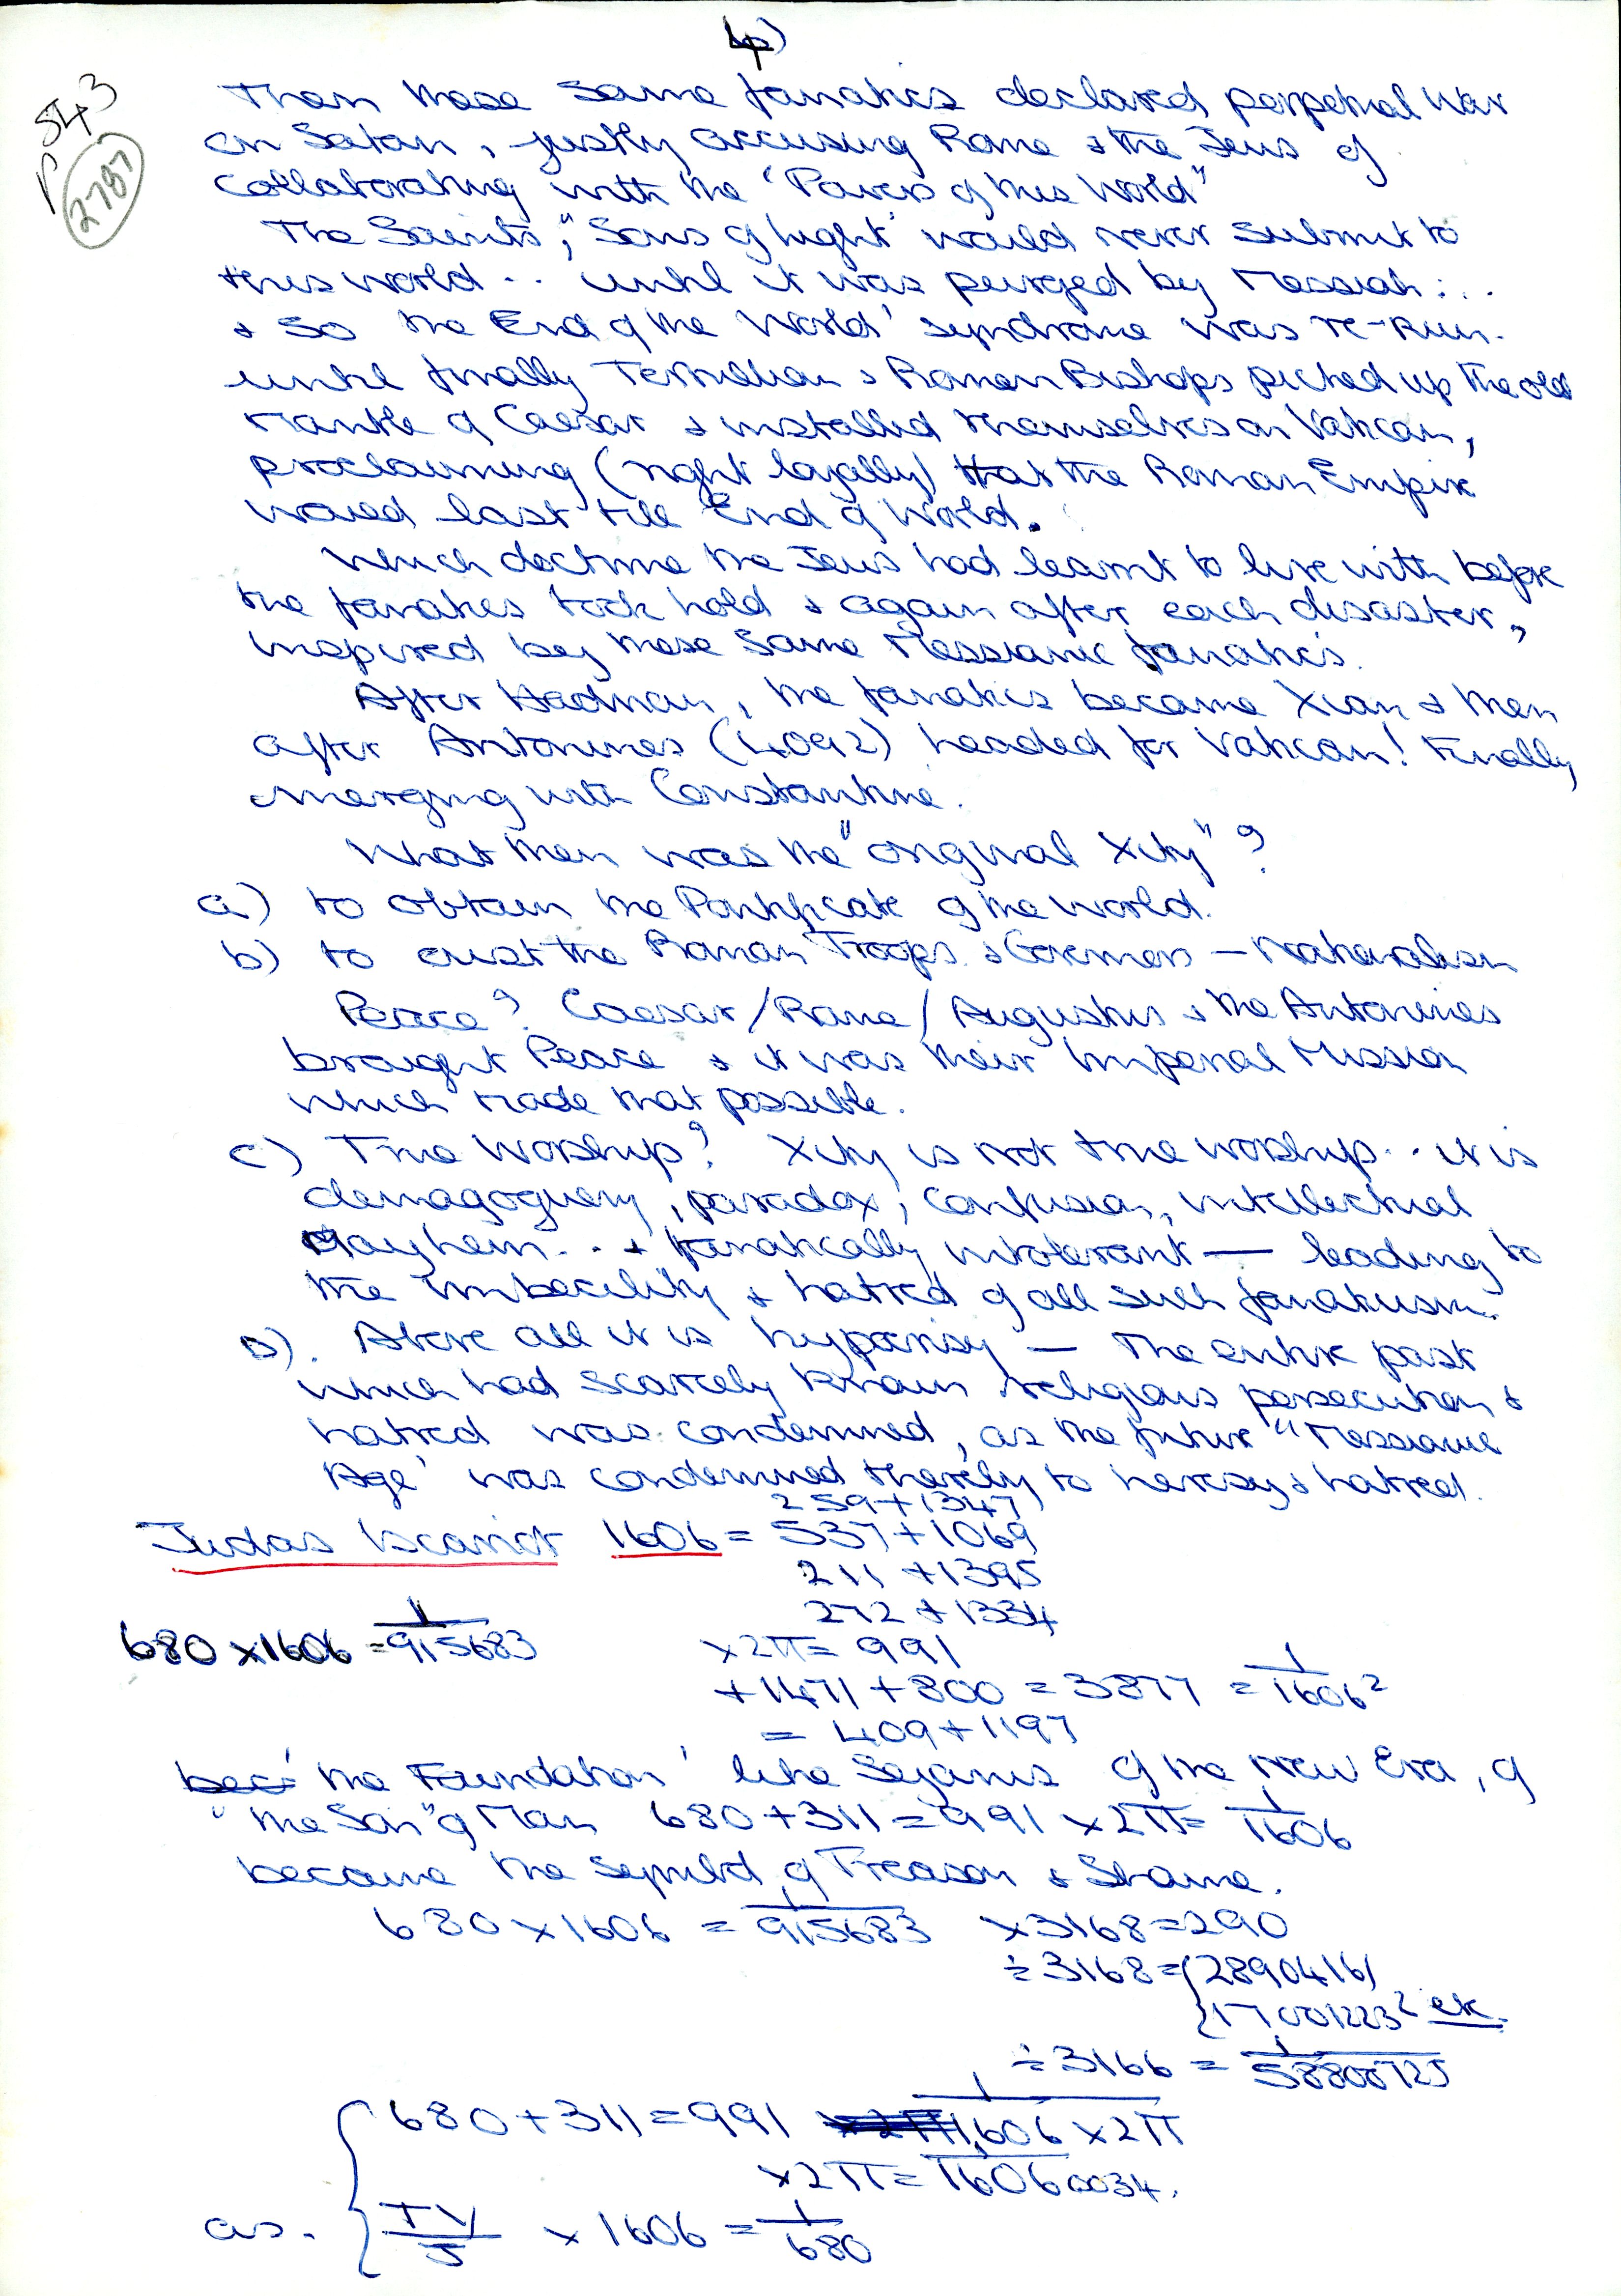 4)
P 543
2787
Then these same fanatics declared perpetual War
on Satan, justly accusing Rome & the Jews of
Collaborating with the "Powers of this World"
The Saints, "Sons of Light" would never submit to
this world .. until it was purged by Messiah ...
& so the End of the World' syndrome was re-run.
until finally Tertullian & Roman Bishops picked up the old
Mantle of Caesar & installed themselves on Vatican,
proclaiming (right loyally) that the Roman Empire
would last till End of World.
Which doctrine the Jews had learnt to live with before
the fanatics took hold & again after each disaster,
inspired by these same Messianic fanatics.
After Hadrian, the fanatics became Xian & then
after Antonines (4092) headed for Vatican! Finally
emerging with Constantine.
What then was the "original Xity"?
a) to obtain the Pontificate of the World.
b) to oust the Roman Troops & Governors — Nationalism
Peace? Caesar/Rome/Augustus & the Antonines
brought Peace & it was their Imperial Mission
which made that possible.
c) True Worship? Xity is not true worship .. it is
demagoguery, paradox, confusion, intellectual
Mayhem .. & fanatically intolerant — leading to
the imbecility & hatred of all such fanaticism.
D). Above all it is hypocrisy — The entire past
which had scarcely known religious persecution &
hatred was condemned, as the future "Messianic
Age' was condemned thereby to heresy & hatred.
259+1347
Judas Iscariot 1606 = 537+1069
211 +1395
272 + 1334
680 x1606 = 1/915683 x2π= 991
+1471+800 = 3877 = 1/1606²
= 409+1197
bec: the 'Foundation' like Sejanus of the New Era, of
"the Son" of Man 680+311=991 x2π= 1/1606
became the symbol of Treason & Shame.
680 x1606 = 1/915683 x3168=290
÷3168={2890416)
{17001223² etc.
÷3166 = 1/58808725
{680+311=991 1/1,606 x2π
x2π= 1/16060034.
as. {TV/J x 1606 = 1/680